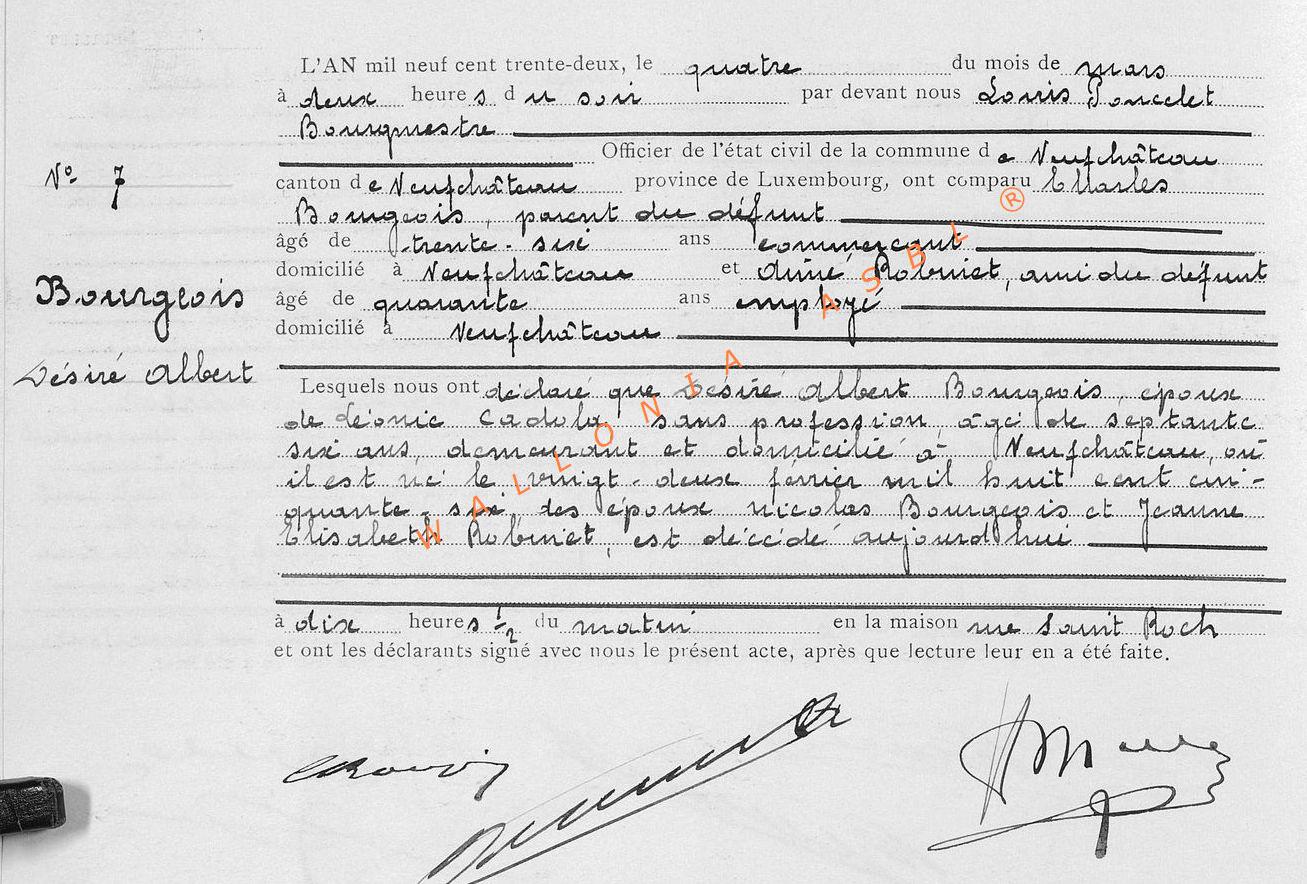 L'AN mil neuf cent trente-deux, le quatre du mois de mars
à deux heures du soir par devant nous Louis Poncelet
Bourgmestre
Officier de l'état civil de la commune de Neufchâteau
N° 7
canton de Neufchâteau province de Luxembourg, ont comparu Charles
Bourgeois, parent du défunt
âgé de trente-six ans commerçant
domicilié à Neufchâteau et Aimé Robinet, ami du défunt
Bourgeois
âgé de quarante ans employé
domicilié à Neufchâteau
Désiré Albert
Lesquels nous ont déclaré que Désiré Albert Bourgeois, époux
de Léonie Cadola, sans profession, âgé de septante
six ans, demeurant et domicilié à Neufchâteau, où
il est né le vingt-deux février mil huit cent cin-
quante-six, des époux Nicolas Bourgeois et Jeanne
Elisabeth Robinet, est décédé aujourd'hui
à dix heures 1/2 du matin en la maison rue Saint Roch
et ont les déclarants signé avec nous le présent acte, après que lecture leur en a été faite.
WALLONIA ASBL ®